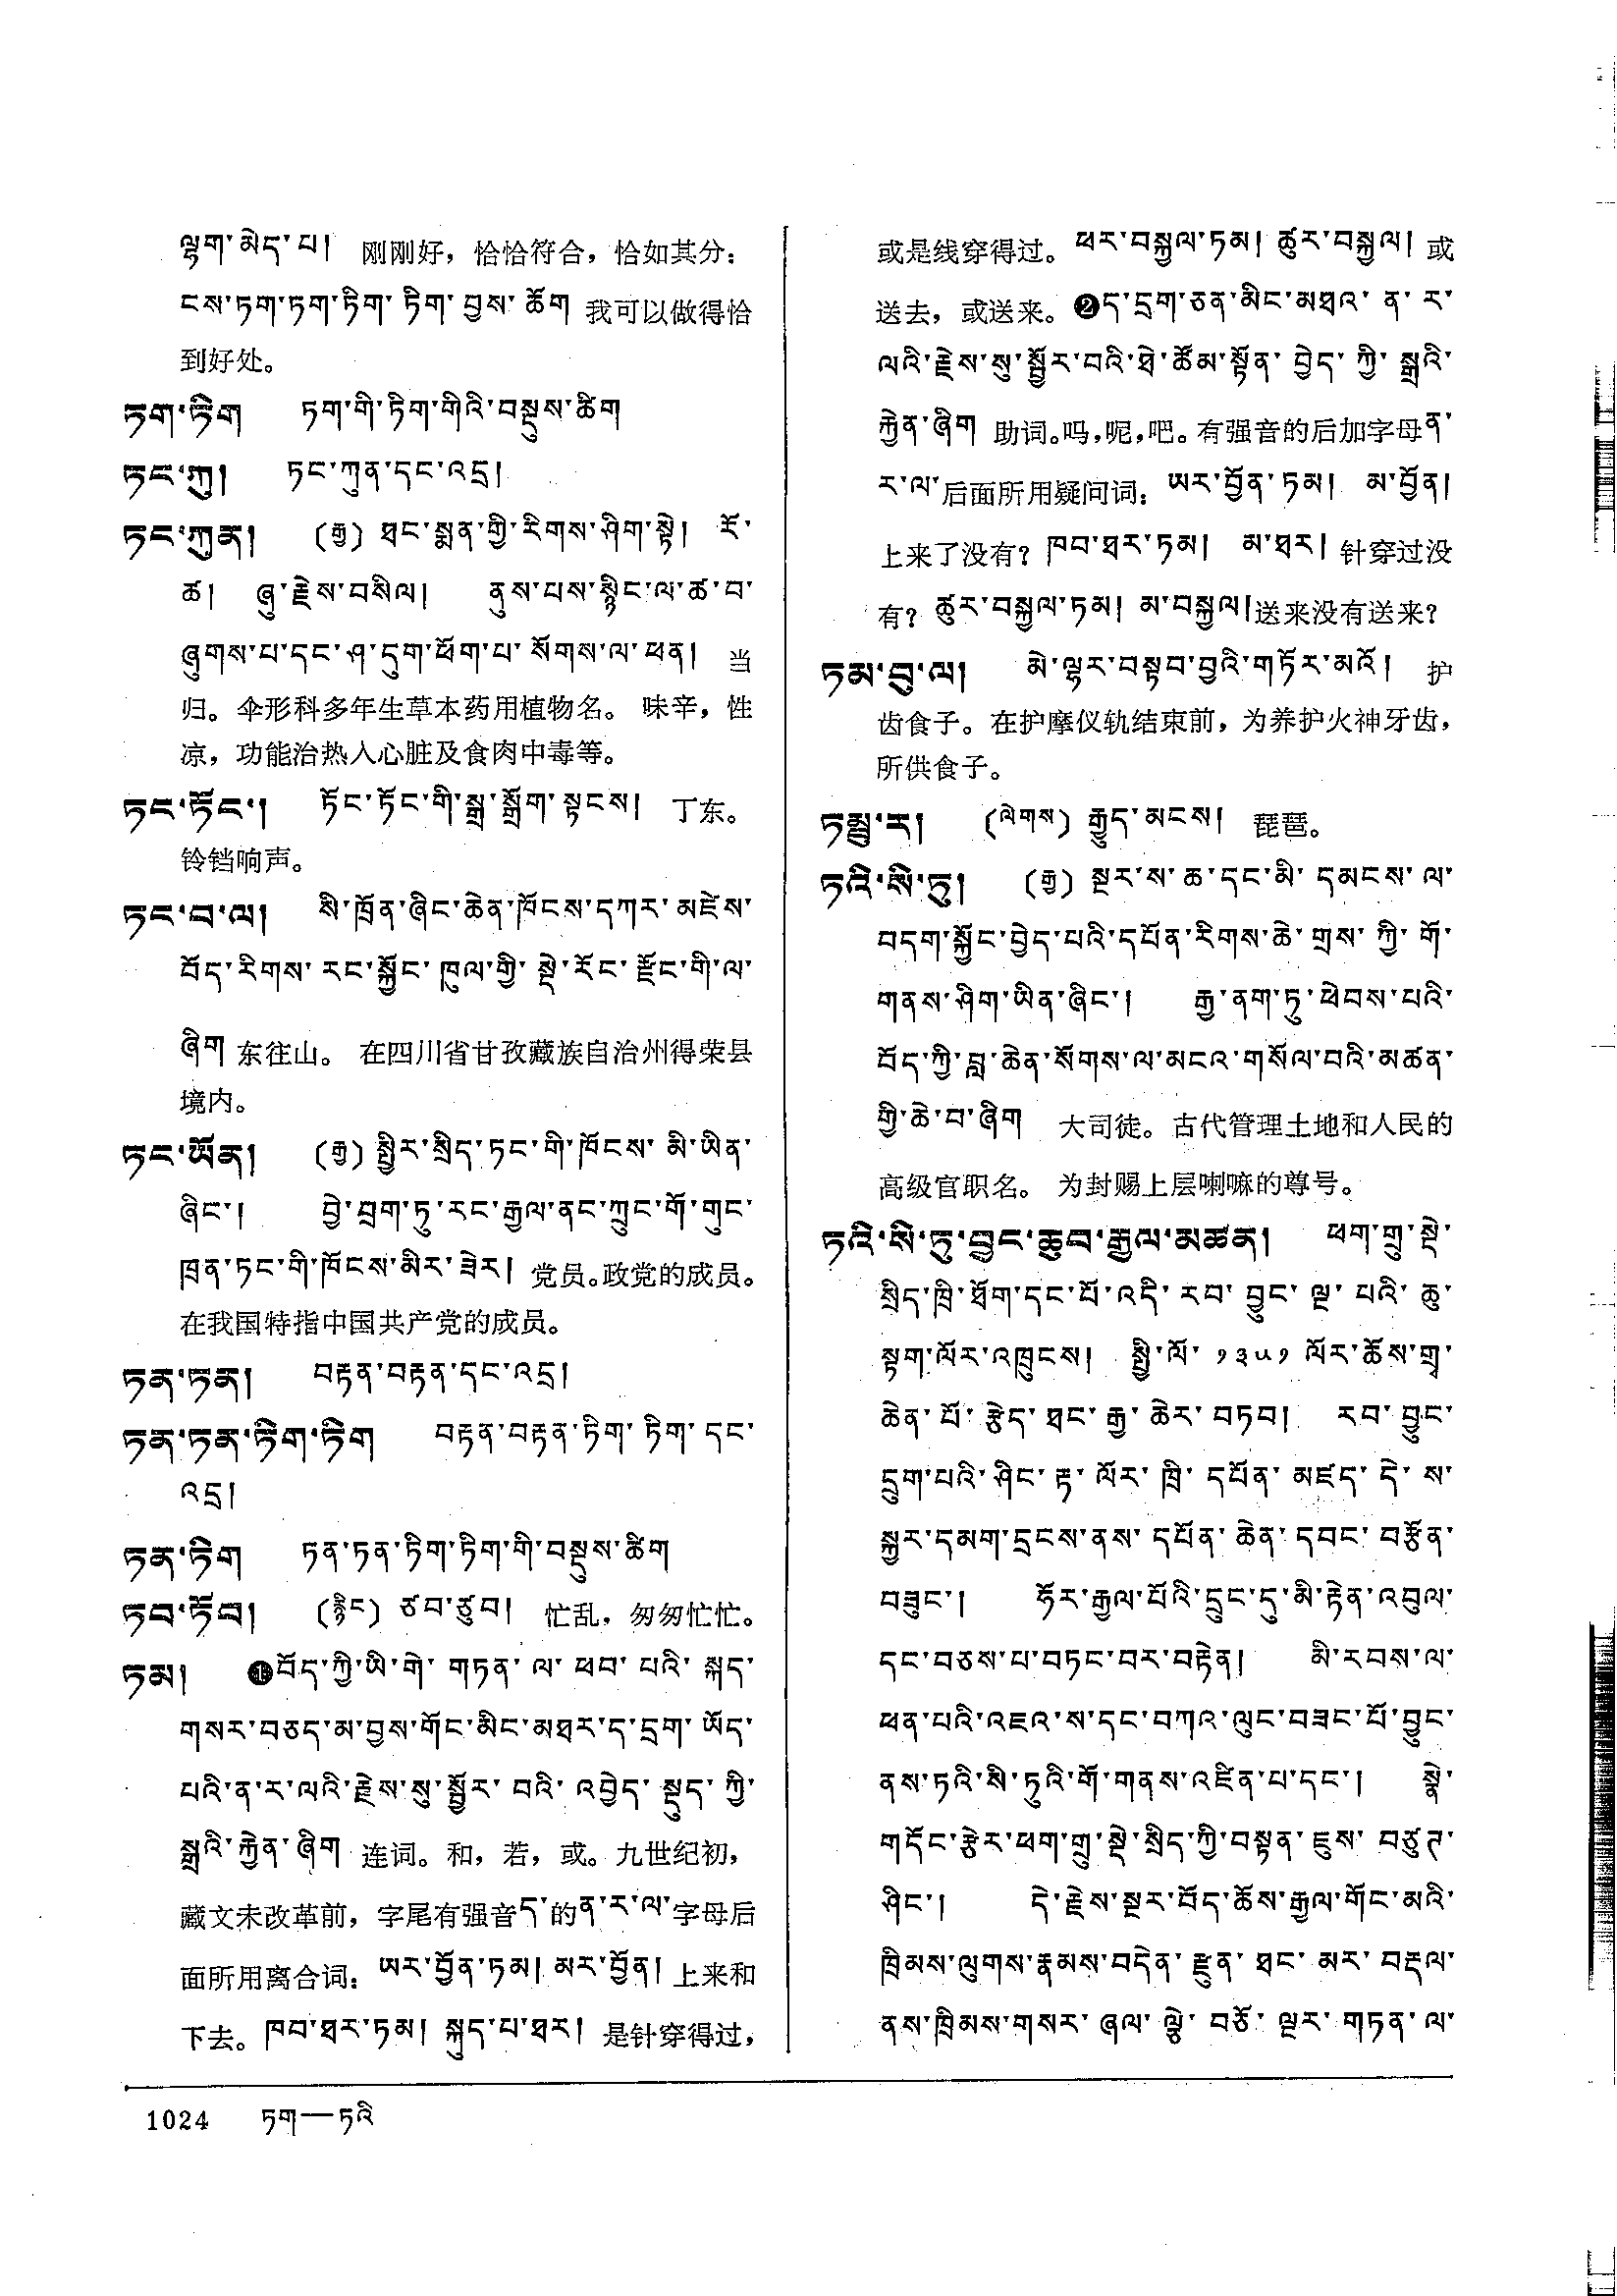 ལྷག་མེད་པ། 刚刚好，恰恰符合，恰如其分：
ངས་ཏག་ཏག་ཏིག་ཏིག་བྱས་ཆོག 我可以做得恰
到好处。
ཏག་ཏིག ཏག་གི་ཏིག་གིའི་བསྡུས་ཚིག
ཏང་ཀུ། ཏང་ཀུན་དང་འདྲ།
ཏང་ཀུན། (རྒྱ) ཐང་སྨན་གྱི་རིགས་ཤིག་སྟེ། རོ་
ཚ། ཞུ་རྗེས་བསིལ། ནུས་པས་སྙིང་ལ་ཚ་བ་
ཞུགས་པ་དང་ཤ་དུག་ཕོག་པ་སོགས་ལ་ཕན། 当
归。伞形科多年生草本药用植物名。味辛，性
凉，功能治热入心脏及食肉中毒等。
ཏང་ཏོང་། ཏོང་ཏོང་གི་སྒྲ་སྒྲོག་སྟངས། 丁东。
铃铛响声。
ཏང་བ་ལ། སི་ཁྲོན་ཞིང་ཆེན་ཁོངས་དཀར་མཛེས་
བོད་རིགས་རང་སྐྱོང་ཁུལ་གྱི་སྡེ་རོང་རྫོང་གི་ལ་
ཞིག 东往山。在四川省甘孜藏族自治州得荣县
境内。
ཏང་ཡོན། (རྒྱ) སྤྱིར་སྲིད་ཏང་གི་ཁོངས་མི་ཡིན་
ཞིང་། བྱེ་བྲག་ཏུ་རང་རྒྱལ་ནང་ཀྲུང་གོ་གུང་
ཁྲན་ཏང་གི་ཁོངས་མིར་ཟེར། 党员。政党的成员。
在我国特指中国共产党的成员。
ཏན་ཏན། བརྟན་བརྟན་དང་འདྲ།
ཏན་ཏན་ཏིག་ཏིག བརྟན་བརྟན་ཏིག་ཏིག་དང་
འདྲ།
ཏན་ཏིག ཏན་ཏན་ཏིག་ཏིག་གི་བསྡུས་ཚིག
ཏབ་ཏོབ། (རྙིང) ཙབ་ཙུབ། 忙乱，匆匆忙忙。
ཏམ། ❶བོད་ཀྱི་ཡི་གེ་གཏན་ལ་ཕབ་པའི་སྐད་
གསར་བཅད་མ་བྱས་གོང་མིང་མཐར་ད་དྲག་ཡོད་
པའི་ན་ར་ལའི་རྗེས་སུ་སྦྱོར་བའི་འབྱེད་སྡུད་ཀྱི་
སྒྲའི་རྐྱེན་ཞིག 连词。和，若，或。九世纪初，
藏文未改革前，字尾有强音ད་的ན་ར་ལ་字母后
面所用离合词：ཡར་བྱོན་ཏམ། མར་བྱོན། 上来和
下去。ཁབ་ཐར་ཏམ། སྐུད་པ་ཐར། 是针穿得过，
或是线穿得过。ཕར་བསྐྱལ་ཏམ། ཚུར་བསྐྱལ། 或
送去，或送来。❷ད་དྲག་ཅན་མིང་མཐའ་ན་ར་
ལའི་རྗེས་སུ་སྦྱོར་བའི་ཐེ་ཚོམ་སྟོན་བྱེད་ཀྱི་སྒྲའི་
རྐྱེན་ཞིག 助词。吗，呢，吧。有强音的后加字母ན་
ར་ལ་后面所用疑问词：ཡར་བྱོན་ཏམ། མ་བྱོན།
上来了没有？ཁབ་ཐར་ཏམ། མ་ཐར། 针穿过没
有？ཚུར་བསྐྱལ་ཏམ། མ་བསྐྱལ།送来没有送来？
ཏམ་བུ་ལ། མེ་ལྷར་བསྟབ་བྱའི་གཏོར་མའོ། 护
齿食子。在护摩仪轨结束前，为养护火神牙齿，
所供食子。
ཏམྦུ་ར། (ལེགས) རྒྱུད་མངས། 琵琶。
ཏའི་སི་ཏུ། (རྒྱ) སྔར་ས་ཆ་དང་མི་དམངས་ལ་
བདག་སྐྱོང་བྱེད་པའི་དཔོན་རིགས་ཆེ་གྲས་ཀྱི་གོ་
གནས་ཤིག་ཡིན་ཞིང་། རྒྱ་ནག་ཏུ་ཕེབས་པའི་
བོད་ཀྱི་བླ་ཆེན་སོགས་ལ་མངའ་གསོལ་བའི་མཚན་
གྱི་ཆེ་བ་ཞིག 大司徒。古代管理土地和人民的
高级官职名。为封赐上层喇嘛的尊号。
ཏའི་སི་ཏུ་བྱང་ཆུབ་རྒྱལ་མཚན། ཕག་གྲུ་སྡེ་
སྲིད་ཁྲི་ཐོག་དང་པོ་འདི་རབ་བྱུང་ལྔ་པའི་ཆུ་
སྟག་ལོར་འཁྲུངས། སྤྱི་ལོ་༡༣༥༡ལོར་ཆོས་གྲྭ་
ཆེན་པོ་རྩེད་ཐང་རྒྱ་ཆེར་བཏབ། རབ་བྱུང་
དྲུག་པའི་ཤིང་རྟ་ལོར་ཁྲི་དཔོན་མཛད་དེ་ས་
སྐྱར་དམག་དྲངས་ནས་དཔོན་ཆེན་དབང་བརྩོན་
བཟུང་། ཧོར་རྒྱལ་པོའི་དྲུང་དུ་མི་རྟེན་འབུལ་
དང་བཅས་པ་བཏང་བར་བརྟེན། མི་རབས་ལ་
ཕན་པའི་འཇའ་ས་དང་བཀའ་ལུང་བཟང་པོ་བྱུང་
ནས་ཏའི་སི་ཏུའི་གོ་གནས་འཛིན་པ་དང་། སྣེ་
གདོང་རྩེར་ཕག་གྲུ་སྡེ་སྲིད་ཀྱི་བསྟན་ཇུས་བཙུཊ་
ཤིང་། དེ་རྗེས་སྔར་བོད་ཆོས་རྒྱལ་གོང་མའི་
ཁྲིམས་ལུགས་རྣམས་བདེན་རྫུན་ཐང་མར་བརྡལ་
ནས་ཁྲིམས་གསར་ཞལ་ལྕེ་བཅོ་ལྔར་གཏན་ལ་
1024 ཏག—ཏའི